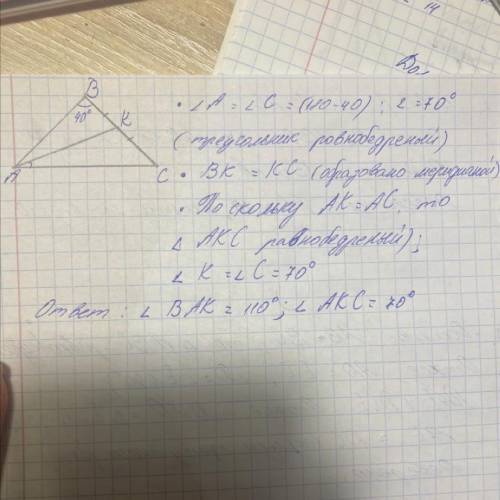 14
До
B
40°
K
A
C
• ∠A = ∠C = (180-40) : 2 = 70°
(треугольник равнобедреный)
• BK = KC (образовано медианой)
• Поскольку AK = AC, то
∠ AKC равнобедреный);
∠ K = ∠ C = 70°
Ответ : ∠ BAK = 110°; ∠ AKC = 70°